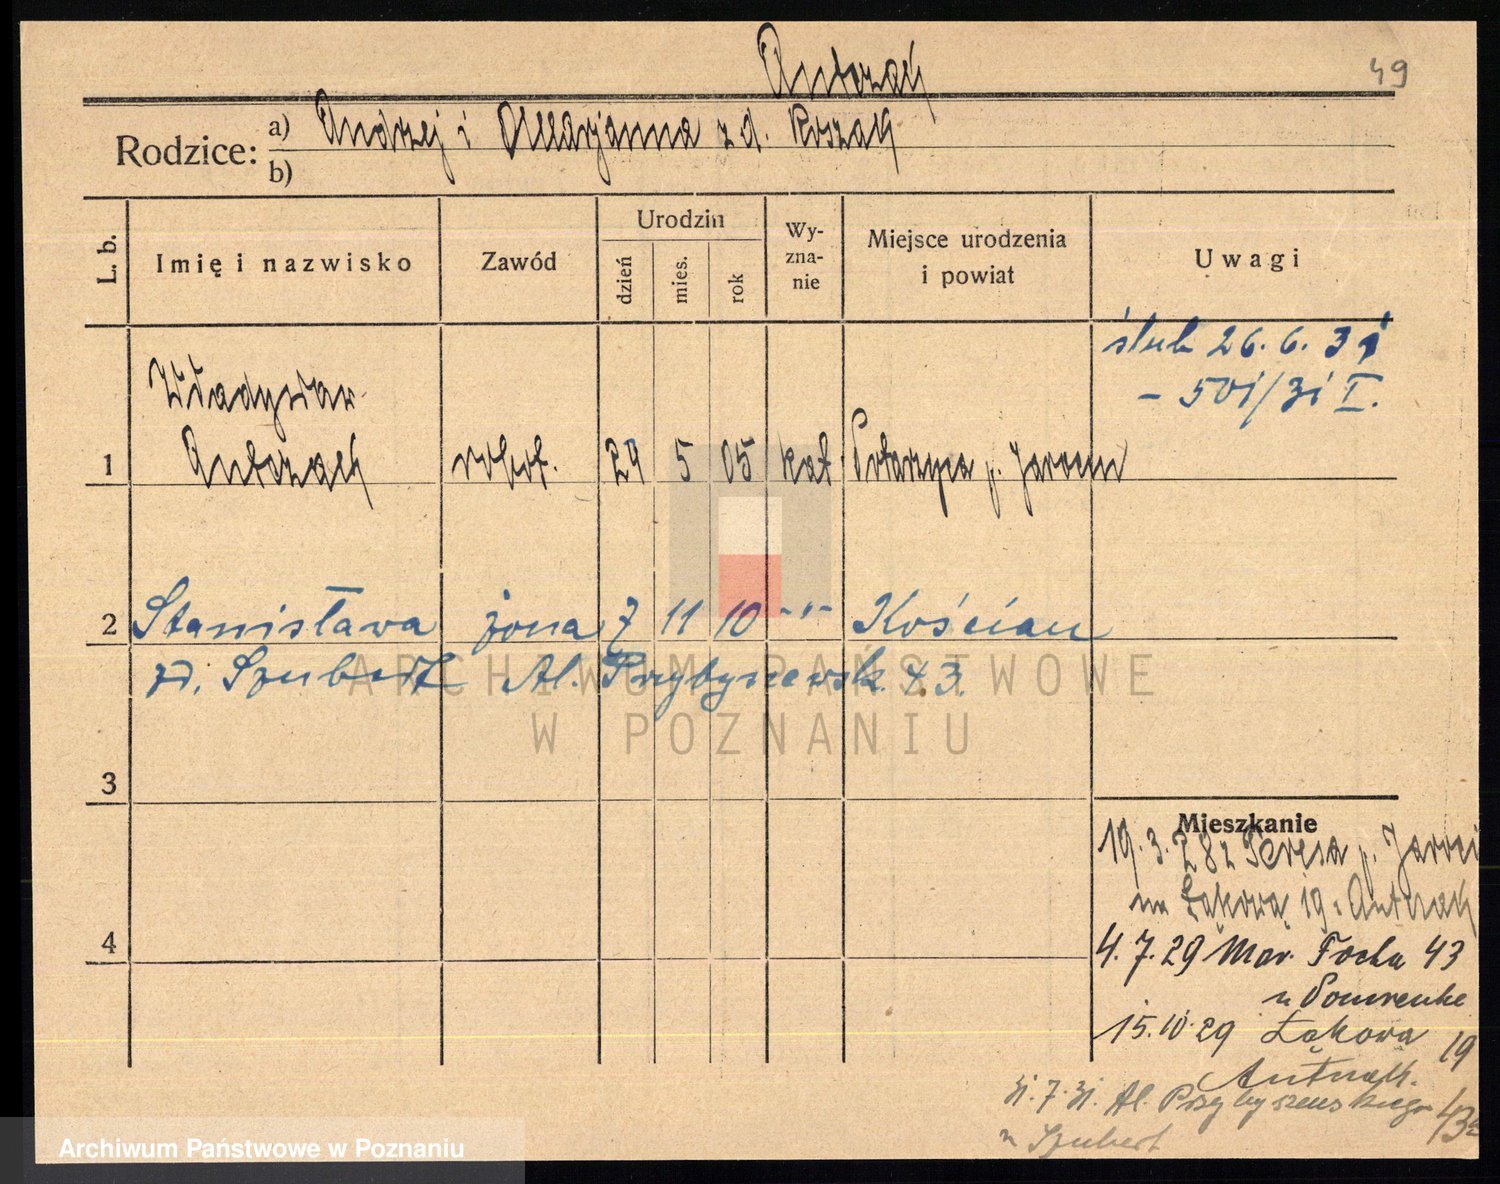 Antczak
49
Rodzice: a) Andrzej i Marjanna z d. Koszak
b)
L. b.
Imię i nazwisko
Zawód
Urodzin
dzień
mies.
rok
Wy-
zna-
nie
Miejsce urodzenia
i powiat
Uwagi
ślub 26. 6. 31
- 501/31 I.
Władysław
1 Antczak robot. 29 5 05 kat. Potarzyca p. Jarocin
2 Stanisława żona 7 11 10 -"- Kościan
zd. Szubert Al. Przybyszewsk. 43.
ARCHIWUM PAŃSTWOWE
W POZNANIU
3
Mieszkanie
19. 3. 28 z Teresa p. Jaroci
na Łąkową 19 Antczak
4
4. 7. 29 Mar. Focha 43
u
15. 10. 29 Łąkowa 19
Antczak.
31. 7. 31. Al. Przybyszewskiego 43a
u Szubert
Archiwum Państwowe w Poznaniu